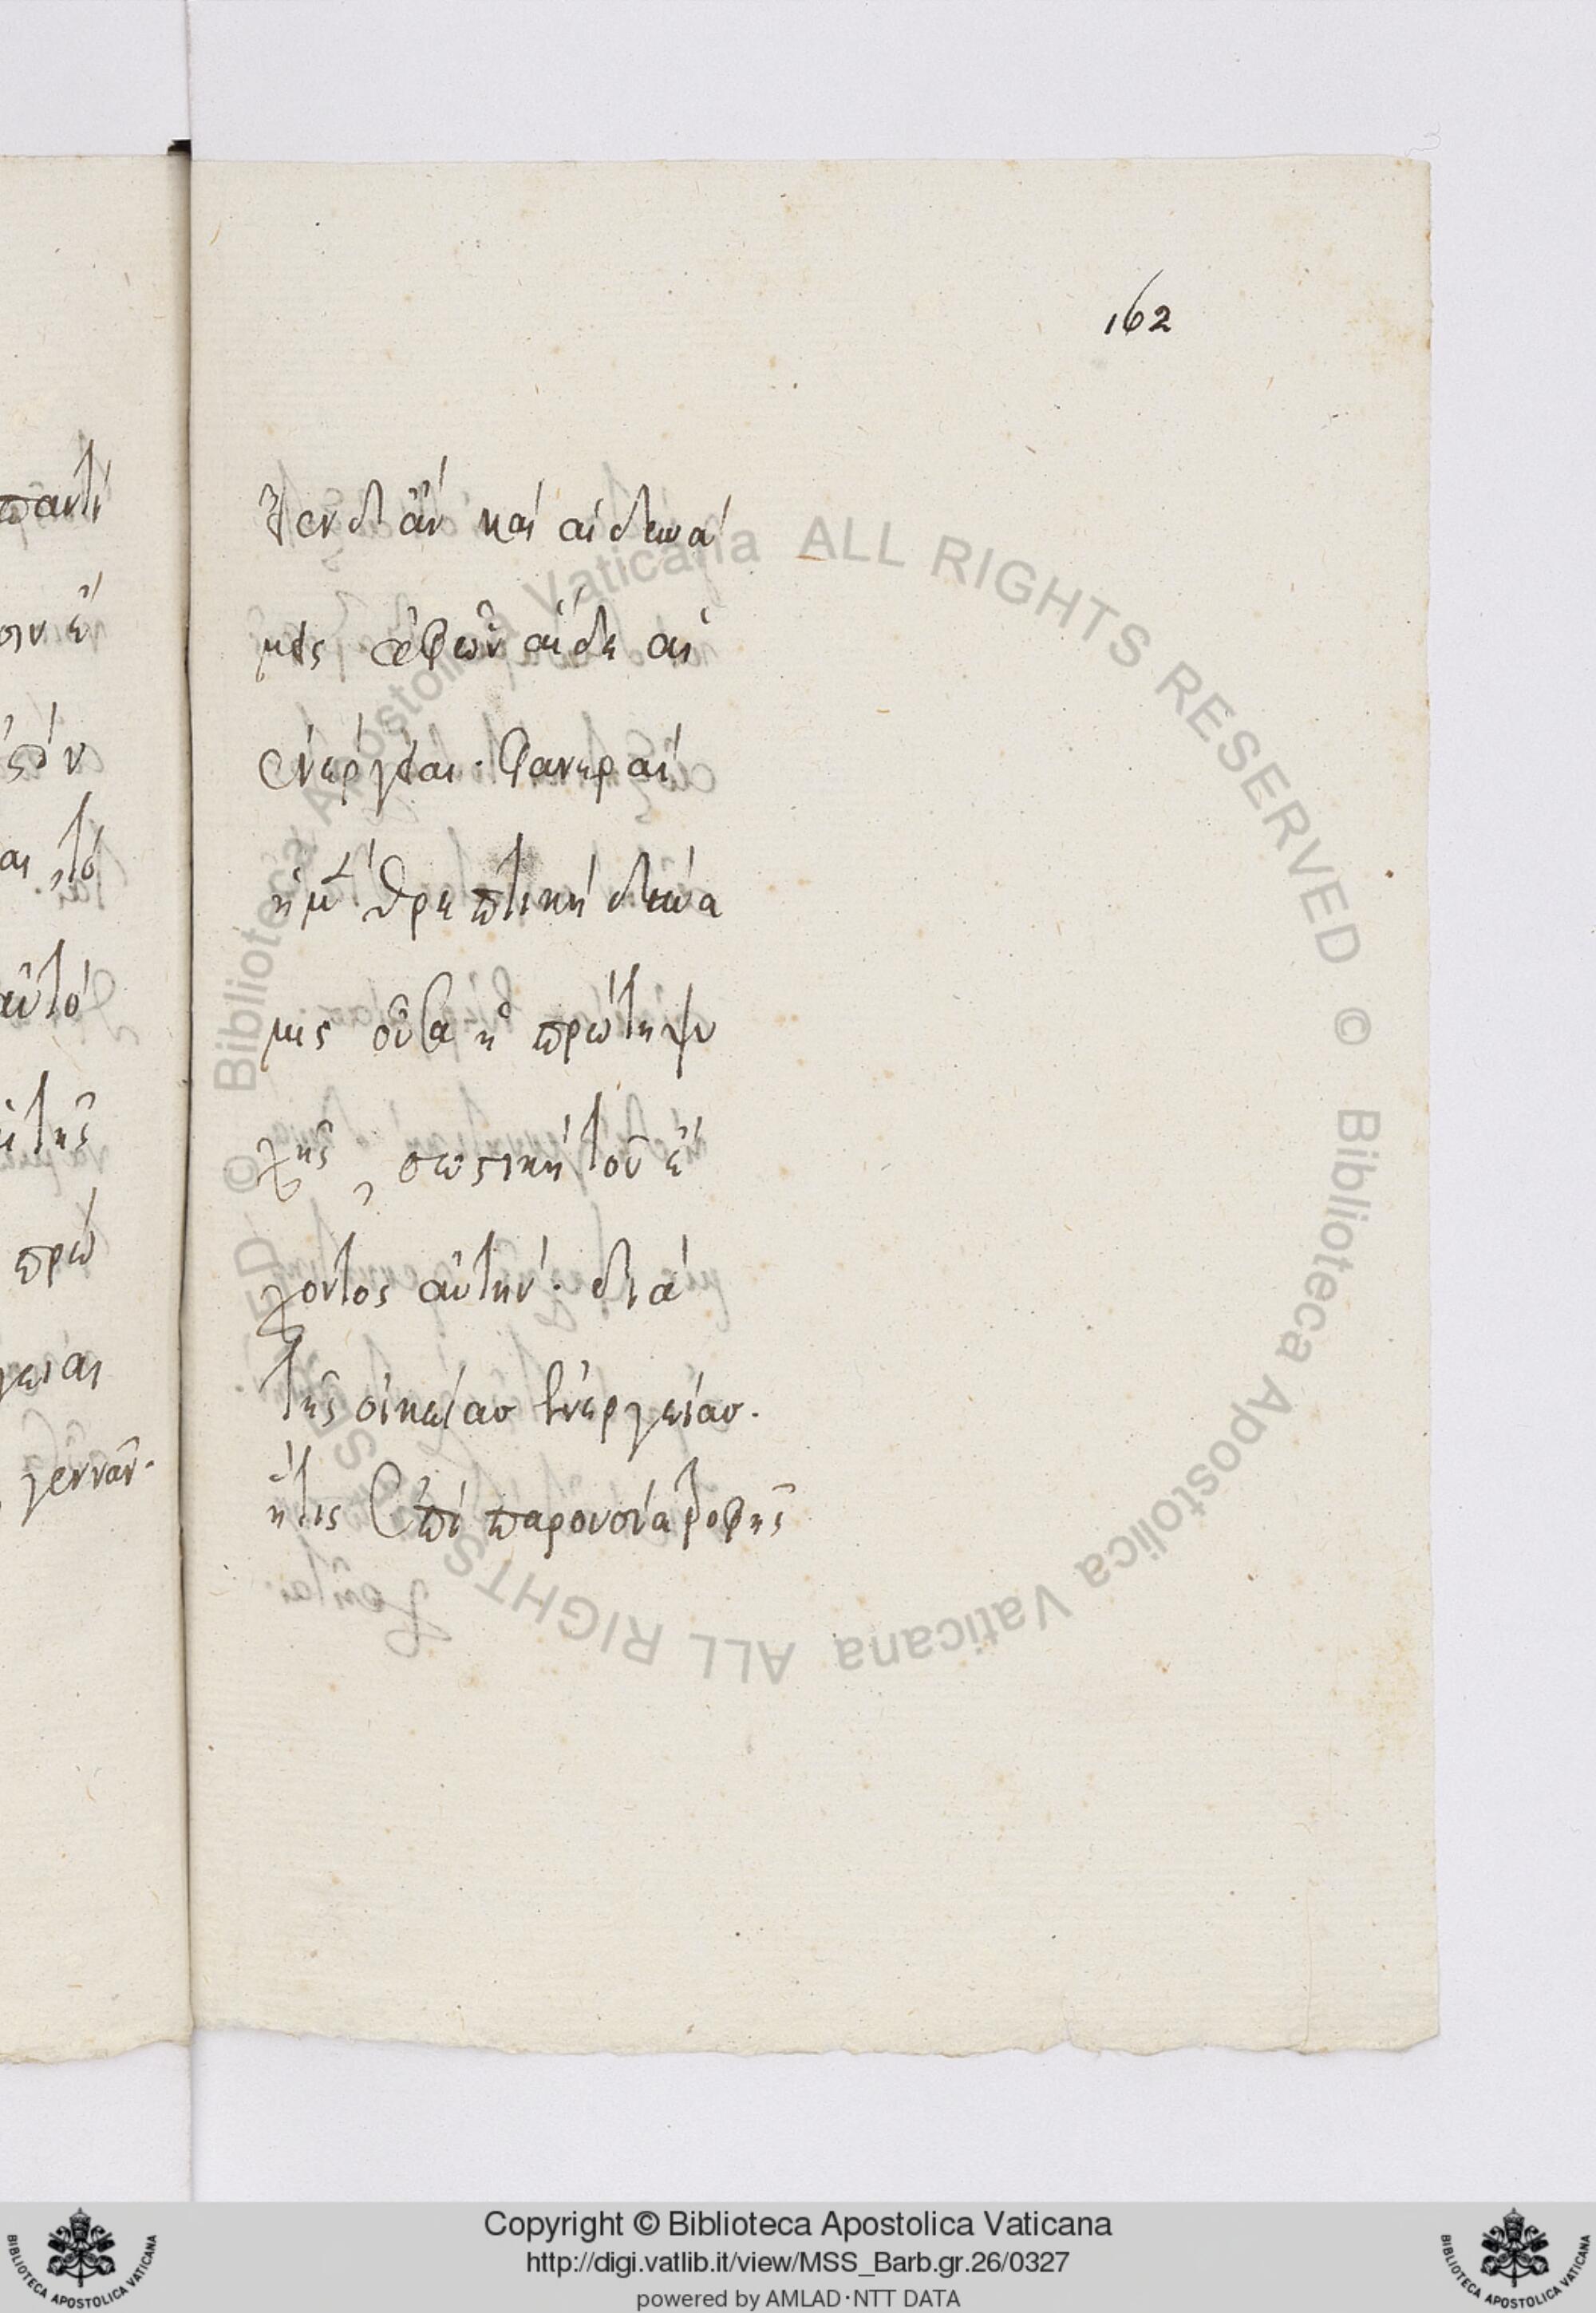 162
παντὶ
αι, τὸ
αὐτὸ
πρώ
γεννᾶν.
εν δ' ἂν καὶ αἱ δυνά
μεις ἀφ' ὧν αἵδε αἱ
ἐνέργειαι. φανεραὶ
ἡ μὲν θρεπτικὴ δύνα
μις οὖσα ἡ πρώτη ψυ
χῆς, σωστικὴ τοῦ ἔ
χοντος αὐτήν. διὰ
τῆς οἰκείας ἐνεργείας.
ἥτις ἐπὶ παρουσία τροφῆς
© Biblioteca Apostolica Vaticana ALL RIGHTS RESERVED © Biblioteca Apostolica Vaticana ALL RIGHTS RESERVED
Copyright © Biblioteca Apostolica Vaticana
http://digi.vatlib.it/view/MSS_Barb.gr.26/0327
powered by AMLAD·NTT DATA
BIBLIOTECA APOSTOLICA VATICANA
BIBLIOTECA APOSTOLICA VATICANA